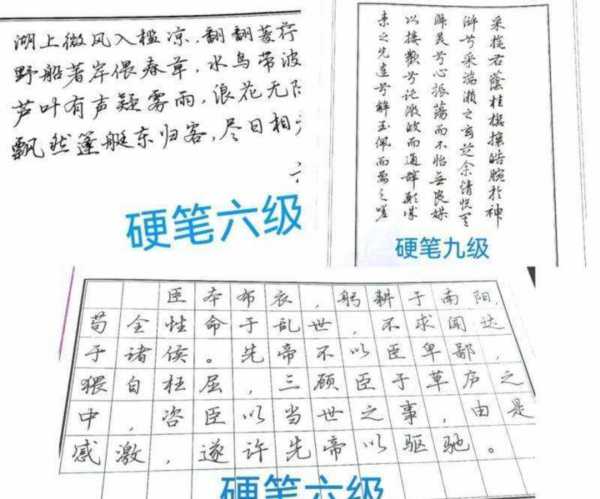 湖上微风入槛凉,翻翻菱荇
野船著岸偎春草,水鸟带波
芦叶有声疑雾雨,浪花无
飘然篷艇东归客,尽日相
硬笔六级
采旄右蔭桂旗攘皓腕於神
滸兮采湍瀨之玄芝余情悦其
淑美兮心振蕩而不怡無良媒
以接歡兮託微波而通辭願誠
素之先達兮解玉佩而要之嗟
硬笔九级
臣本布衣,躬耕于南阳,
苟全性命于乱世,不求闻达
于诸侯。先帝不以臣卑鄙,
猥自枉屈,三顾臣于草庐之
中,咨臣以当世之事,由是
感激,遂许先帝以驱驰。
硬笔六级